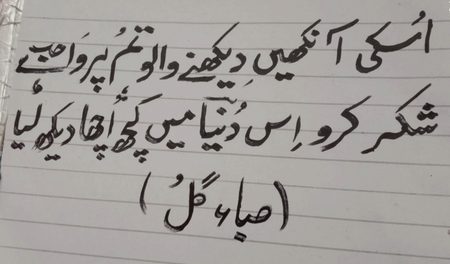 اُسکی آنکھیں دِیکھنے والو تمُ پر وَاجب ہے
شکر کرو اِس دُنیا میں کچھ اُچھا دیکھ لیا
(صباء گلُ)